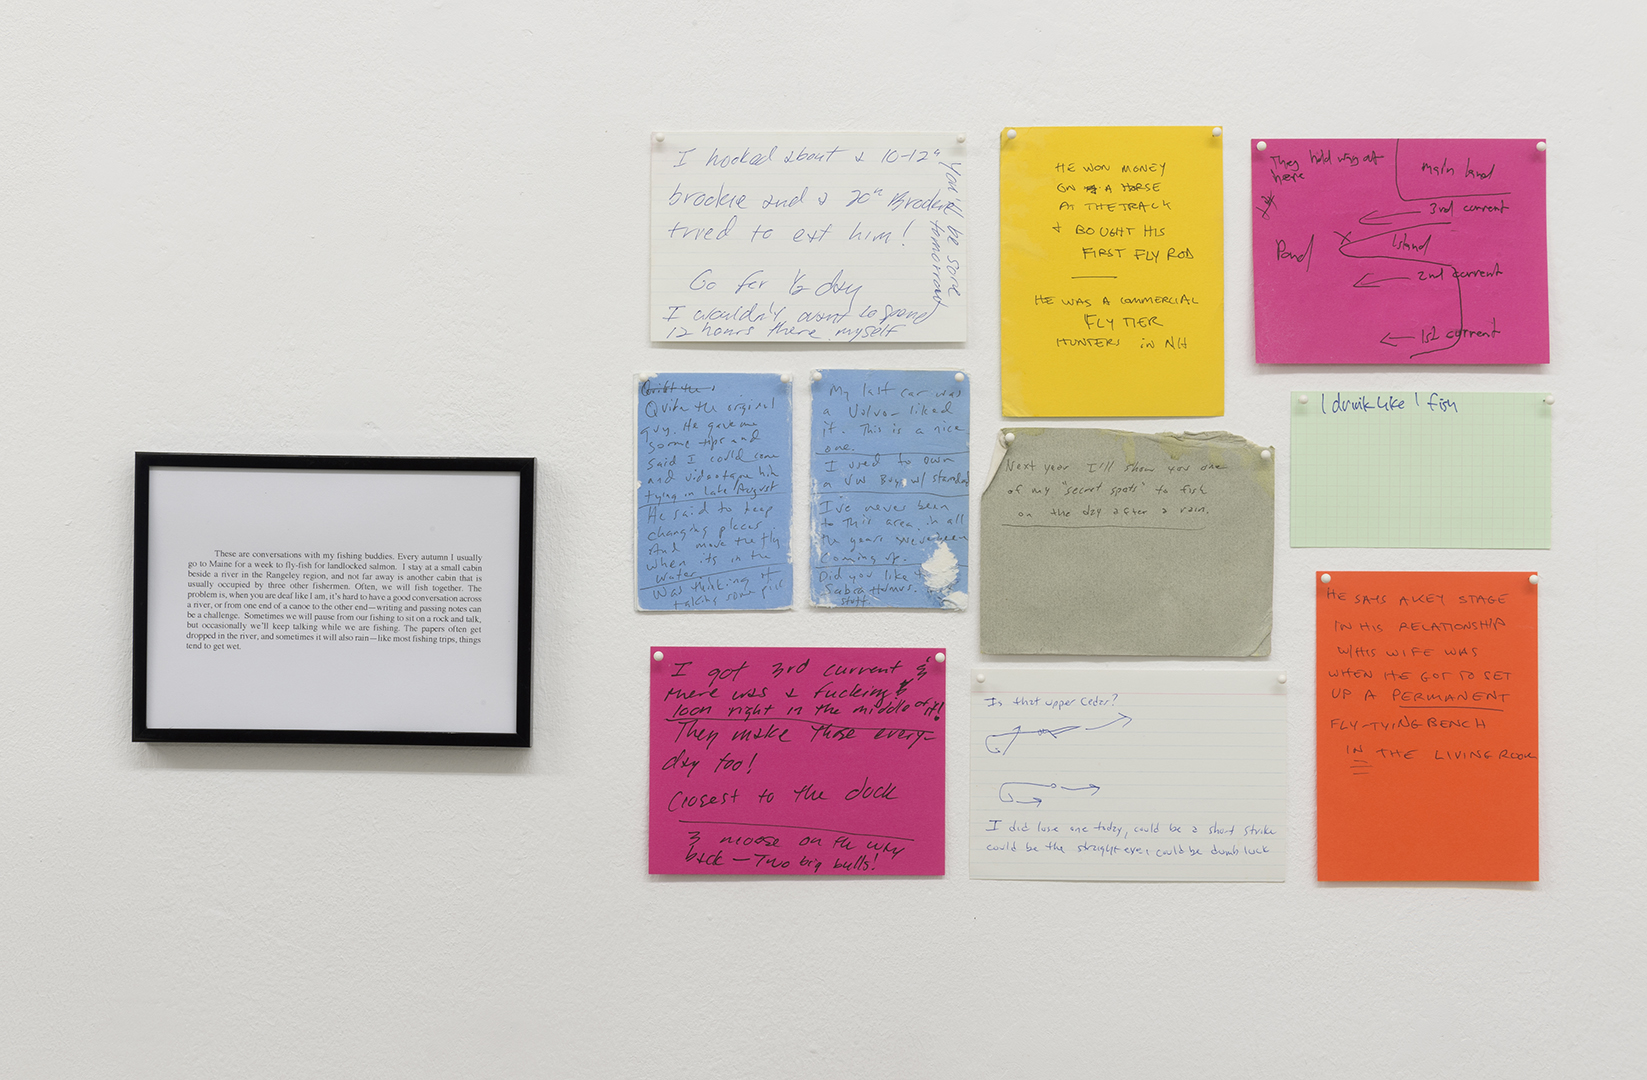 These are conversations with my fishing buddies. Every autumn I usually
go to Maine for a week to fly-fish for landlocked salmon. I stay at a small cabin
beside a river in the Rangeley region, and not far away is another cabin that is
usually occupied by three other fishermen. Often, we will fish together. The
problem is, when you are deaf like I am, it's hard to have a good conversation across
a river, or from one end of a canoe to the other end—writing and passing notes can
be a challenge. Sometimes we will pause from our fishing to sit on a rock and talk,
but occasionally we'll keep talking while we are fishing. The papers often get
dropped in the river, and sometimes it will also rain—like most fishing trips, things
tend to get wet.
I hooked about a 10-12"
brookie and a 20" Brookie
tried to eat him!
Go for ½ day
I wouldn't want to spend
12 hours there myself
You'll be sore
tomorrow
HE WON MONEY
ON A HORSE
AT THE TRACK
+ BOUGHT HIS
FIRST FLY ROD
HE WAS A COMMERCIAL
FLY TIER
HUNTERS IN NH
They hold way out
here
main land
3rd current
Pond
Island
2nd current
1st current
Quite the original
guy. He gave me
some tips and
said I could come
and videotape him
tying in late August
He said to keep
changing places
And move the fly
when its in the
water
Was thinking of
taking some pics
My last car was
a Volvo - liked
it. This is a nice
one.
I used to own
a VW Bug w/ standard
I've never been
to this area in all
the years
coming up.
Did you like
Sabra Humus.
stuff.
Next year I'll show you one
of my "secret spots" to fish
on the day after a rain.
I drink like I fish
I got 3rd current &
there was a fucking
loon right in the middle of it!
They make those every-
day too!
Closest to the dock
3 moose on the way
back - Two big bulls!
Is that upper Cedar?
I did lose one today, could be a short strike
could be the straight eye, could be dumb luck
HE SAYS A KEY STAGE
IN HIS RELATIONSHIP
W/HIS WIFE WAS
WHEN HE GOT TO SET
UP A PERMANENT
FLY-TYING BENCH
IN THE LIVING ROOM